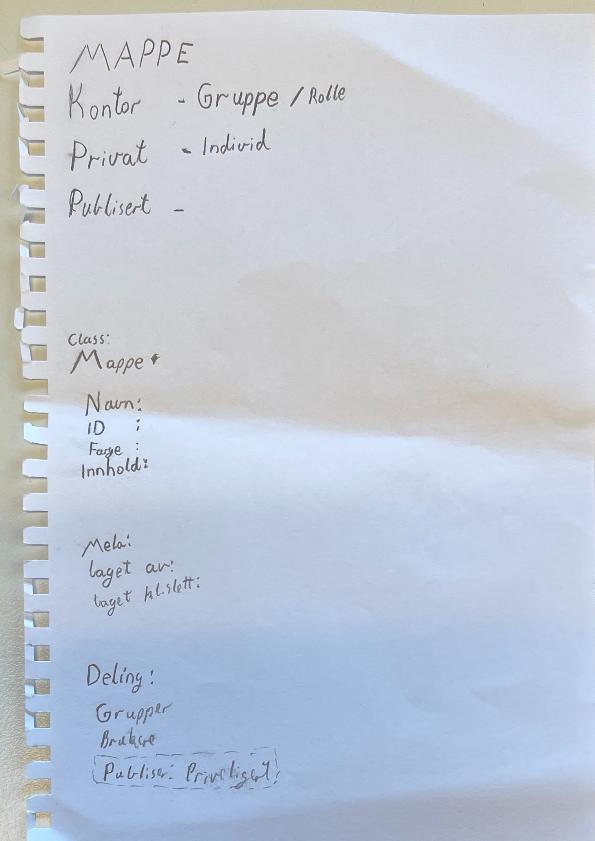 MAPPE
Kontor - Gruppe / Rolle
Privat - Individ
Publisert -
Class:
Mappe
Navn:
ID :
Farge :
Innhold:
Meta:
laget av:
laget kl.slett:
Deling:
Grupper
Brukere
Publiser: Priveligert